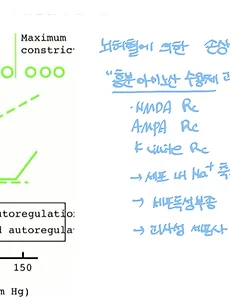 Maximum
constric
뇌허혈에 의한 손상
"흥분아미노산 수용체
· NMDA Rc
AMPA Rc
Kainate Rc
→ 세포 내 Na⁺
→ 세포독성부종
→ 괴사성 세포사
utoregulatio
d autoregula
150
m Hg)